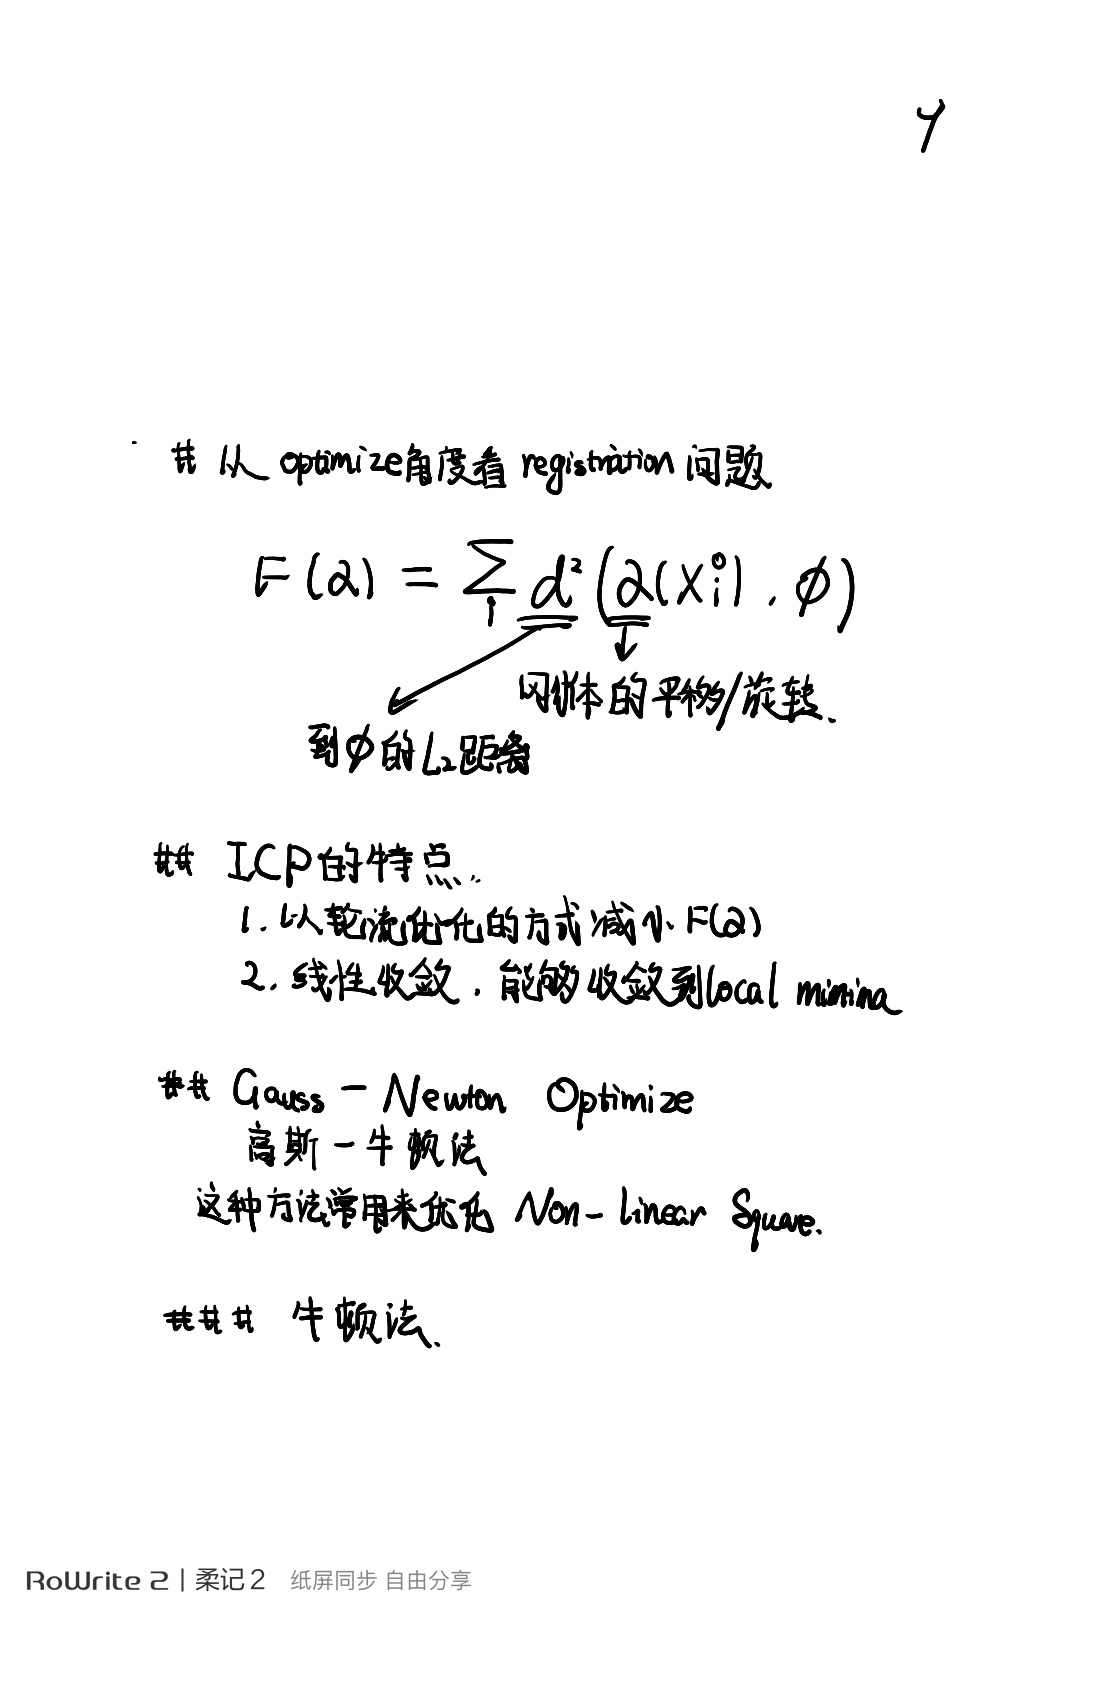 # 从 optimize角度看 registration 问题
F(α) = Σ_i d²(α(Xi⁰), ϕ)
刚体的平移/旋转.
到ϕ的L₂距离
## ICP的特点.
1. 以轮流优化的方式减小 F(α)
2. 线性收敛, 能够收敛到local minima
## Gauss-Newton Optimize
高斯-牛顿法
这种方法常用来优化 Non-linear Square.
### 牛顿法.
RoWrite 2 | 柔记 2 纸屏同步 自由分享